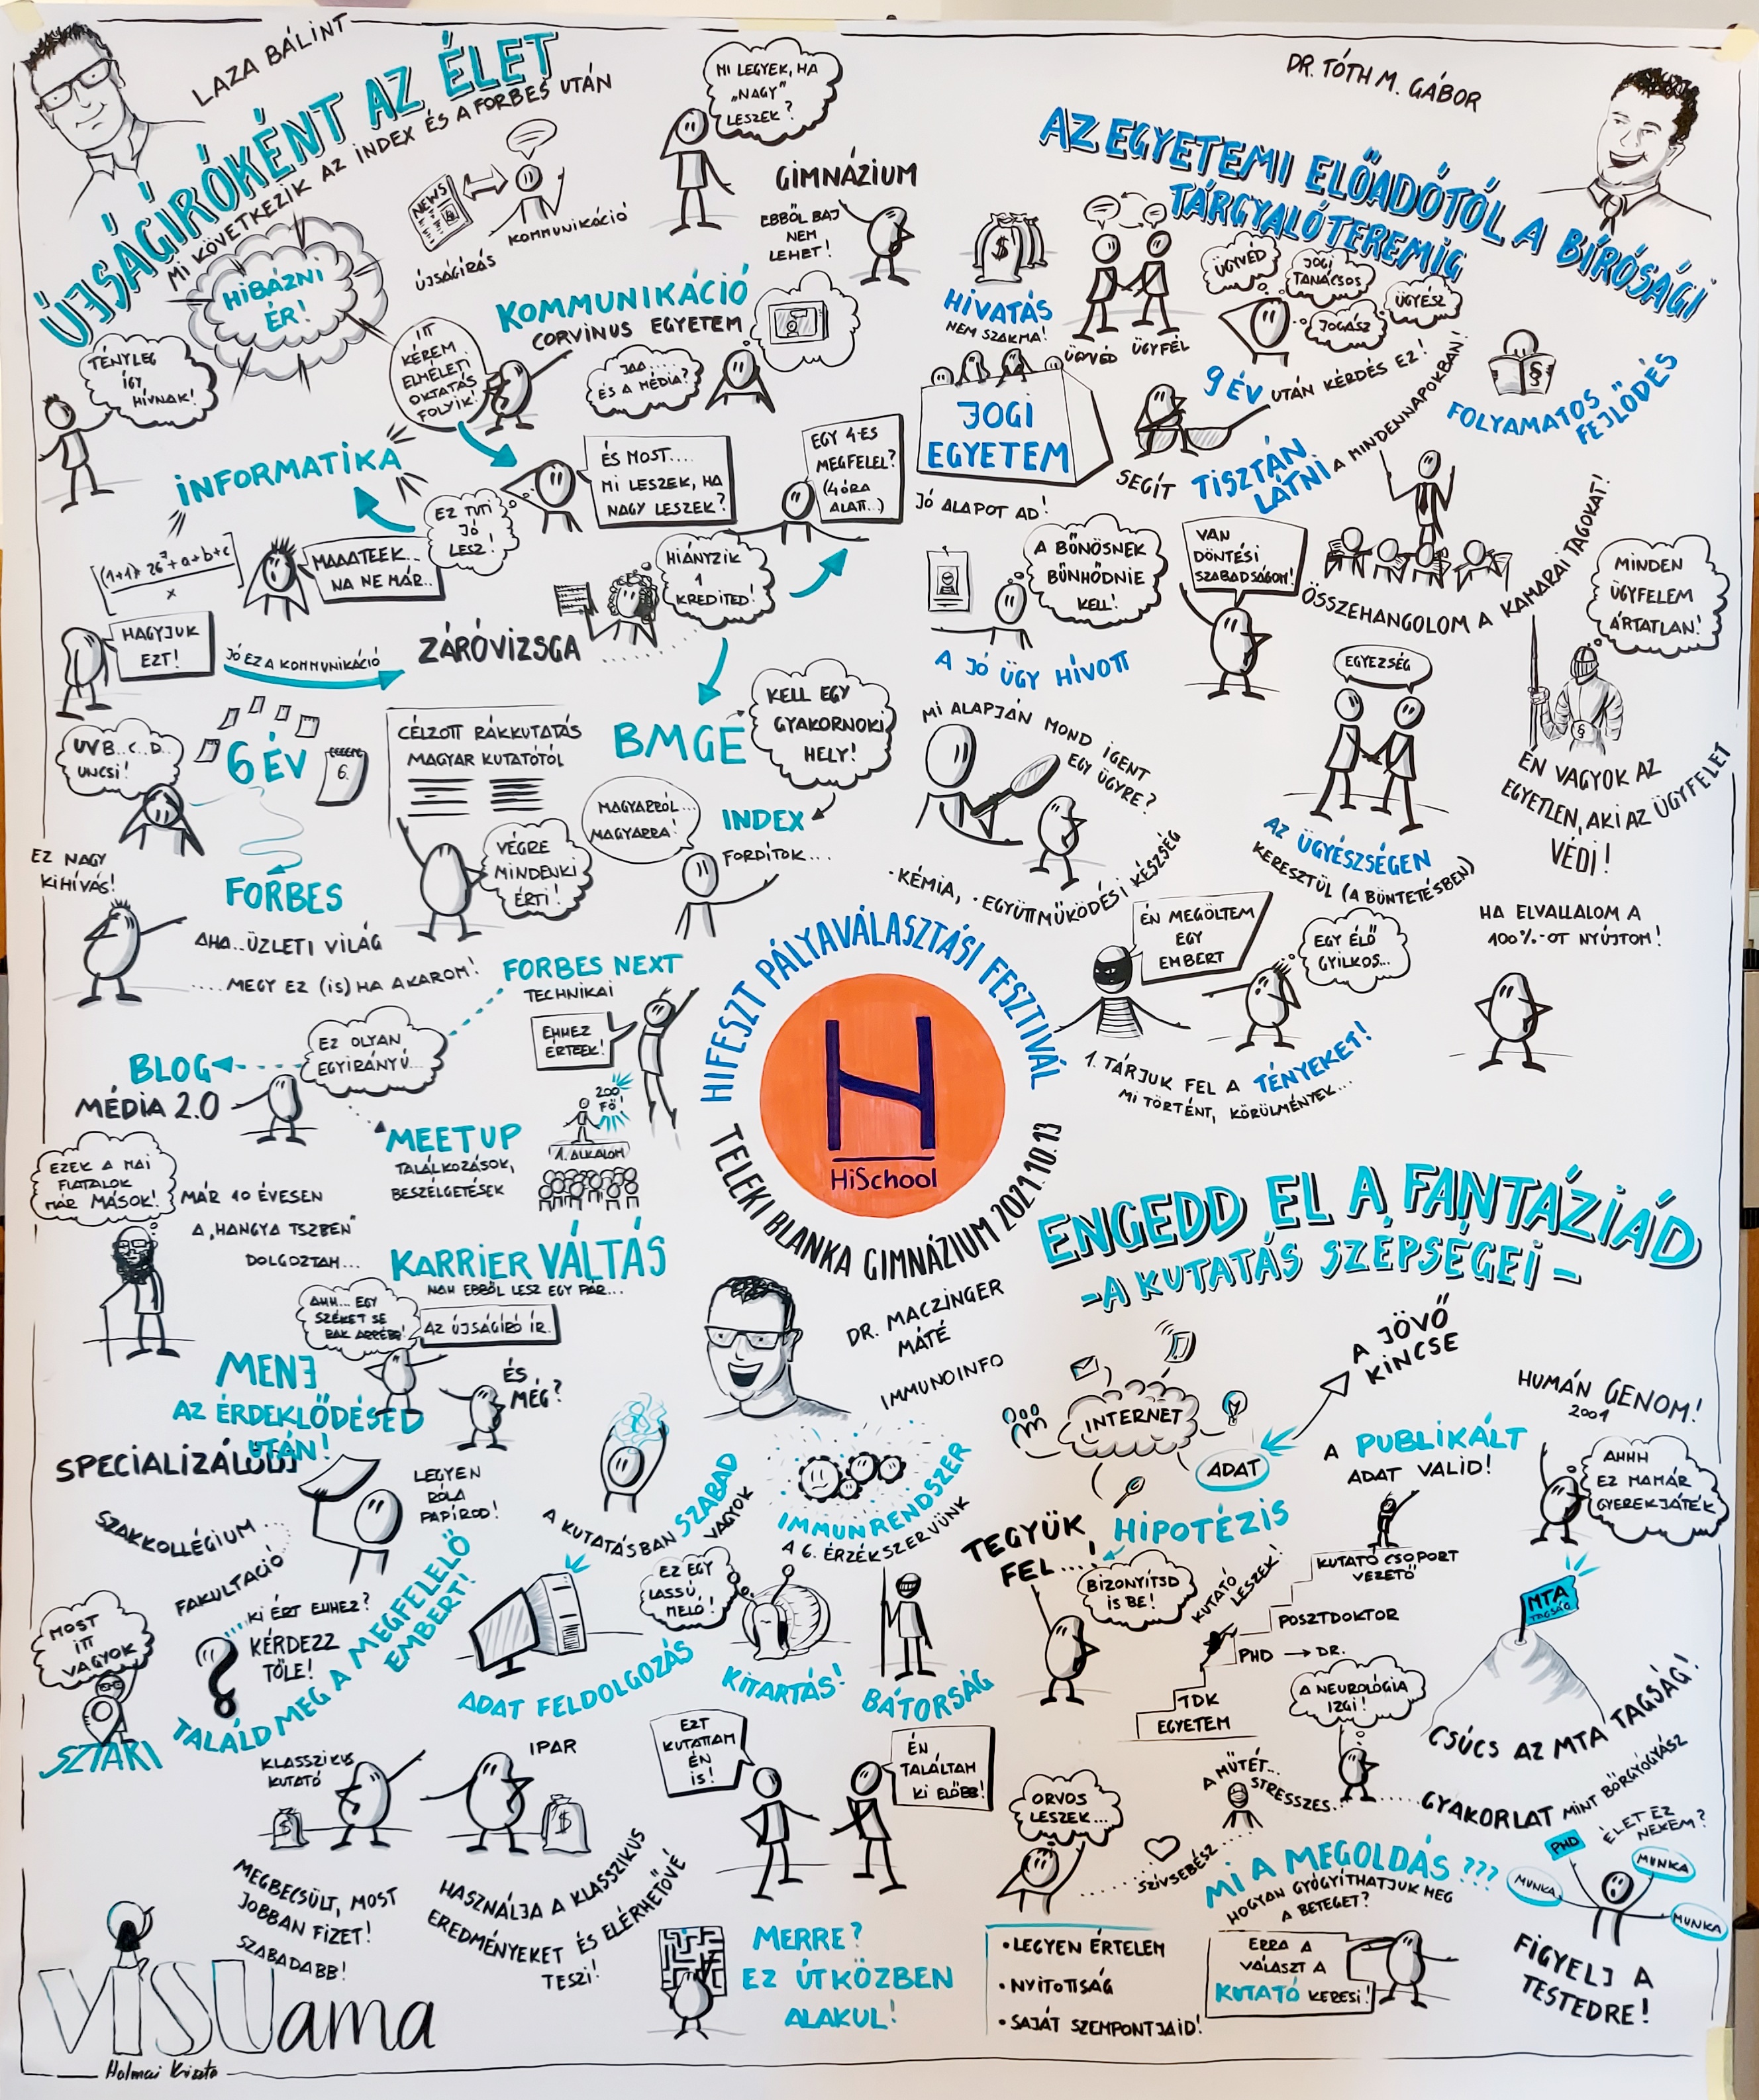 LAZA BÁLINT
ÚJSÁGÍRÓKÉNT AZ ÉLET
MI KÖVETKEZIK AZ INDEX ÉS A FORBES UTÁN
HIBÁZNI
ÉR!
TÉNYLEG
ÍGY
HÍVNAK!
NEWS
ÚJSÁGÍRÁS
KOMMUNIKÁCIÓ
MI LEGYEK, HA
„NAGY"
LESZEK?
GIMNÁZIUM
EBBŐL BAJ
NEM
LEHET!
KOMMUNIKÁCIÓ
CORVINUS EGYETEM
ITT
KÉREM
ELMÉLETI
OKTATÁS
FOLYIK!
JAA....
ÉS A MÉDIA?
INFORMATIKA
EZ TUTI
JÓ
LESZ!
ÉS MOST....
MI LESZEK, HA
NAGY LESZEK?
EGY 4-ES
MEGFELEL?
(4 ÓRA
ALATT...)
MAAATEEK...
NA NE MÁR..
HIÁNYZIK
1
KREDITED!
HAGYJUK
EZT!
JÓ EZ A KOMMUNIKÁCIÓ
ZÁRÓVIZSGA
BMGE
KELL EGY
GYAKORNOKI
HELY!
INDEX
FORDÍTOK...
MAGYARRÓL...
MAGYARRA!
CÉLZOTT RÁKKUTATÁS
MAGYAR KUTATÓTÓL
VÉGRE
MINDENKI
ÉRTI!
6 ÉV
6.
UVB..C..D..
UNCSI!
EZ NAGY
KIHÍVÁS!
FORBES
AHA...ÜZLETI VILÁG
....MEGY EZ (IS) HA AKAROM!
FORBES NEXT
TECHNIKAI
EHHEZ
ÉRTEEK!
EZ OLYAN
EGYIRÁNYÚ...
BLOG
MÉDIA 2.0
MEETUP
TALÁLKOZÁSOK,
BESZÉLGETÉSEK
200
FŐ!
1. ALKALOM
EZEK A MAI
FIATALOK
MÁR MÁSOK!
MÁR 10 ÉVESEN
A „HANGYA TSZBEN"
DOLGOZTAM...
KARRIER VÁLTÁS
NAH EBBŐL LESZ EGY PÁR...
AHH... EGY
SZÉKET SE
RAK ARRÉBB!
AZ ÚJSÁGÍRÓ ÍR.
ÉS
MÉG?
MENJ
AZ ÉRDEKLŐDÉSED
UTÁN!
SPECIALIZÁLÓDJ
SZAKKOLLÉGIUM
FAKULTÁCIÓ
LEGYEN
RÓLA
PAPÍROD!
KI ÉRT EHHEZ?
KÉRDEZZ
TŐLE!
TALÁLD MEG A MEGFELELŐ
EMBERT!
MOST
ITT
VAGYOK
SZTAKI
HIFESZT PÁLYAVÁLASZTÁSI FESZTIVÁL
HiSchool
TELEKI BLANKA GIMNÁZIUM 2021.10.13
DR. TÓTH M. GÁBOR
AZ EGYETEMI ELŐADÓTÓL A BÍRÓSÁGI
TÁRGYALÓTEREMIG
$
HIVATÁS
NEM SZAKMA!
ÜGYVÉD
ÜGYFÉL
ÜGYVÉD
JOGI
TANÁCSOS
ÜGYÉSZ
JOGÁSZ
9 ÉV UTÁN KÉRDÉS EZ!
§
FOLYAMATOS
FEJLŐDÉS
JOGI
EGYETEM
JÓ ALAPOT AD!
SEGÍT TISZTÁN
LÁTNI A MINDENNAPOKBAN!
A BŰNÖSNEK
BŰNHŐDNIE
KELL!
A JÓ ÜGY HÍVOTT
VAN
DÖNTÉSI
SZABADSÁGOM!
ÖSSZEHANGOLOM A KAMARAI TAGOKAT!
MINDEN
ÜGYFELEM
ÁRTATLAN!
§
ÉN VAGYOK AZ
EGYETLEN, AKI AZ ÜGYFELET
VÉDI!
EGYEZSÉG
AZ ÜGYÉSZSÉGEN
KERESZTÜL (A BÜNTETÉSBEN)
MI ALAPJÁN MOND IGENT
EGY ÜGYRE?
·KÉMIA, ·EGYÜTTMŰKÖDÉSI KÉSZSÉG
ÉN MEGÖLTEM
EGY
EMBERT
EGY ÉLŐ
GYILKOS...
HA ELVALLALOM A
100%-OT NYÚJTOM!
1. TÁRJUK FEL A TÉNYEKET!
MI TÖRTÉNT, KÖRÜLMÉNYEK...
ENGEDD EL A FANTÁZIÁD
-A KUTATÁS SZÉPSÉGEI-
DR. MACZINGER
MÁTÉ
IMMUNOINFO
A KUTATÁSBAN SZABAD
VAGYOK
IMMUNRENDSZER
A 6. ÉRZÉKSZERVÜNK
INTERNET
A JÖVŐ
KINCSE
ADAT
A PUBLIKÁLT
ADAT VALID!
HUMÁN GENOM!
2001
AHHH
EZ MAMÁR
GYEREKJÁTÉK
TEGYÜK
FEL...!
HIPOTÉZIS
BIZONYÍTSD
IS BE!
KUTATÓ
LESZEK!
KUTATÓ CSOPORT
VEZETŐ
POSZTDOKTOR
PHD → DR.
TDK
EGYETEM
MTA
TAGSÁG
CSÚCS AZ MTA TAGSÁG!
ADAT FELDOLGOZÁS
EZ EGY
LASSÚ
MELÓ!
KITARTÁS!
BÁTORSÁG
KLASSZIKUS
KUTATÓ
$
IPAR
$
MEGBECSÜLT, MOST
JOBBAN FIZET!
SZABADABB!
HASZNÁLJA A KLASSZIKUS
EREDMÉNYEKET ÉS ELÉRHETŐVÉ
TESZI!
EZT
KUTATTAM
ÉN
IS!
ÉN
TALÁLTAM
KI ELŐBB!
A NEUROLÓGIA
IZGI!
ORVOS
LESZEK...
SZÍVSEBÉSZ
A MŰTÉT...
STRESSZES...
GYAKORLAT MINT BŐRGYÓGYÁSZ
MI A MEGOLDÁS???
HOGYAN GYÓGYÍTHATJUK MEG
A BETEGET?
ERRA A
VÁLASZT A
KUTATÓ KERESI!
ÉLET EZ
NEKEM?
PHD
MUNKA
MUNKA
MUNKA
FIGYELJ A
TESTEDRE!
MERRE?
EZ ÚTKÖZBEN
ALAKUL!
• LEGYEN ÉRTELEM
• NYITOTTSÁG
• SAJÁT SZEMPONTJAID!
VISUama
Halmai Kriszta